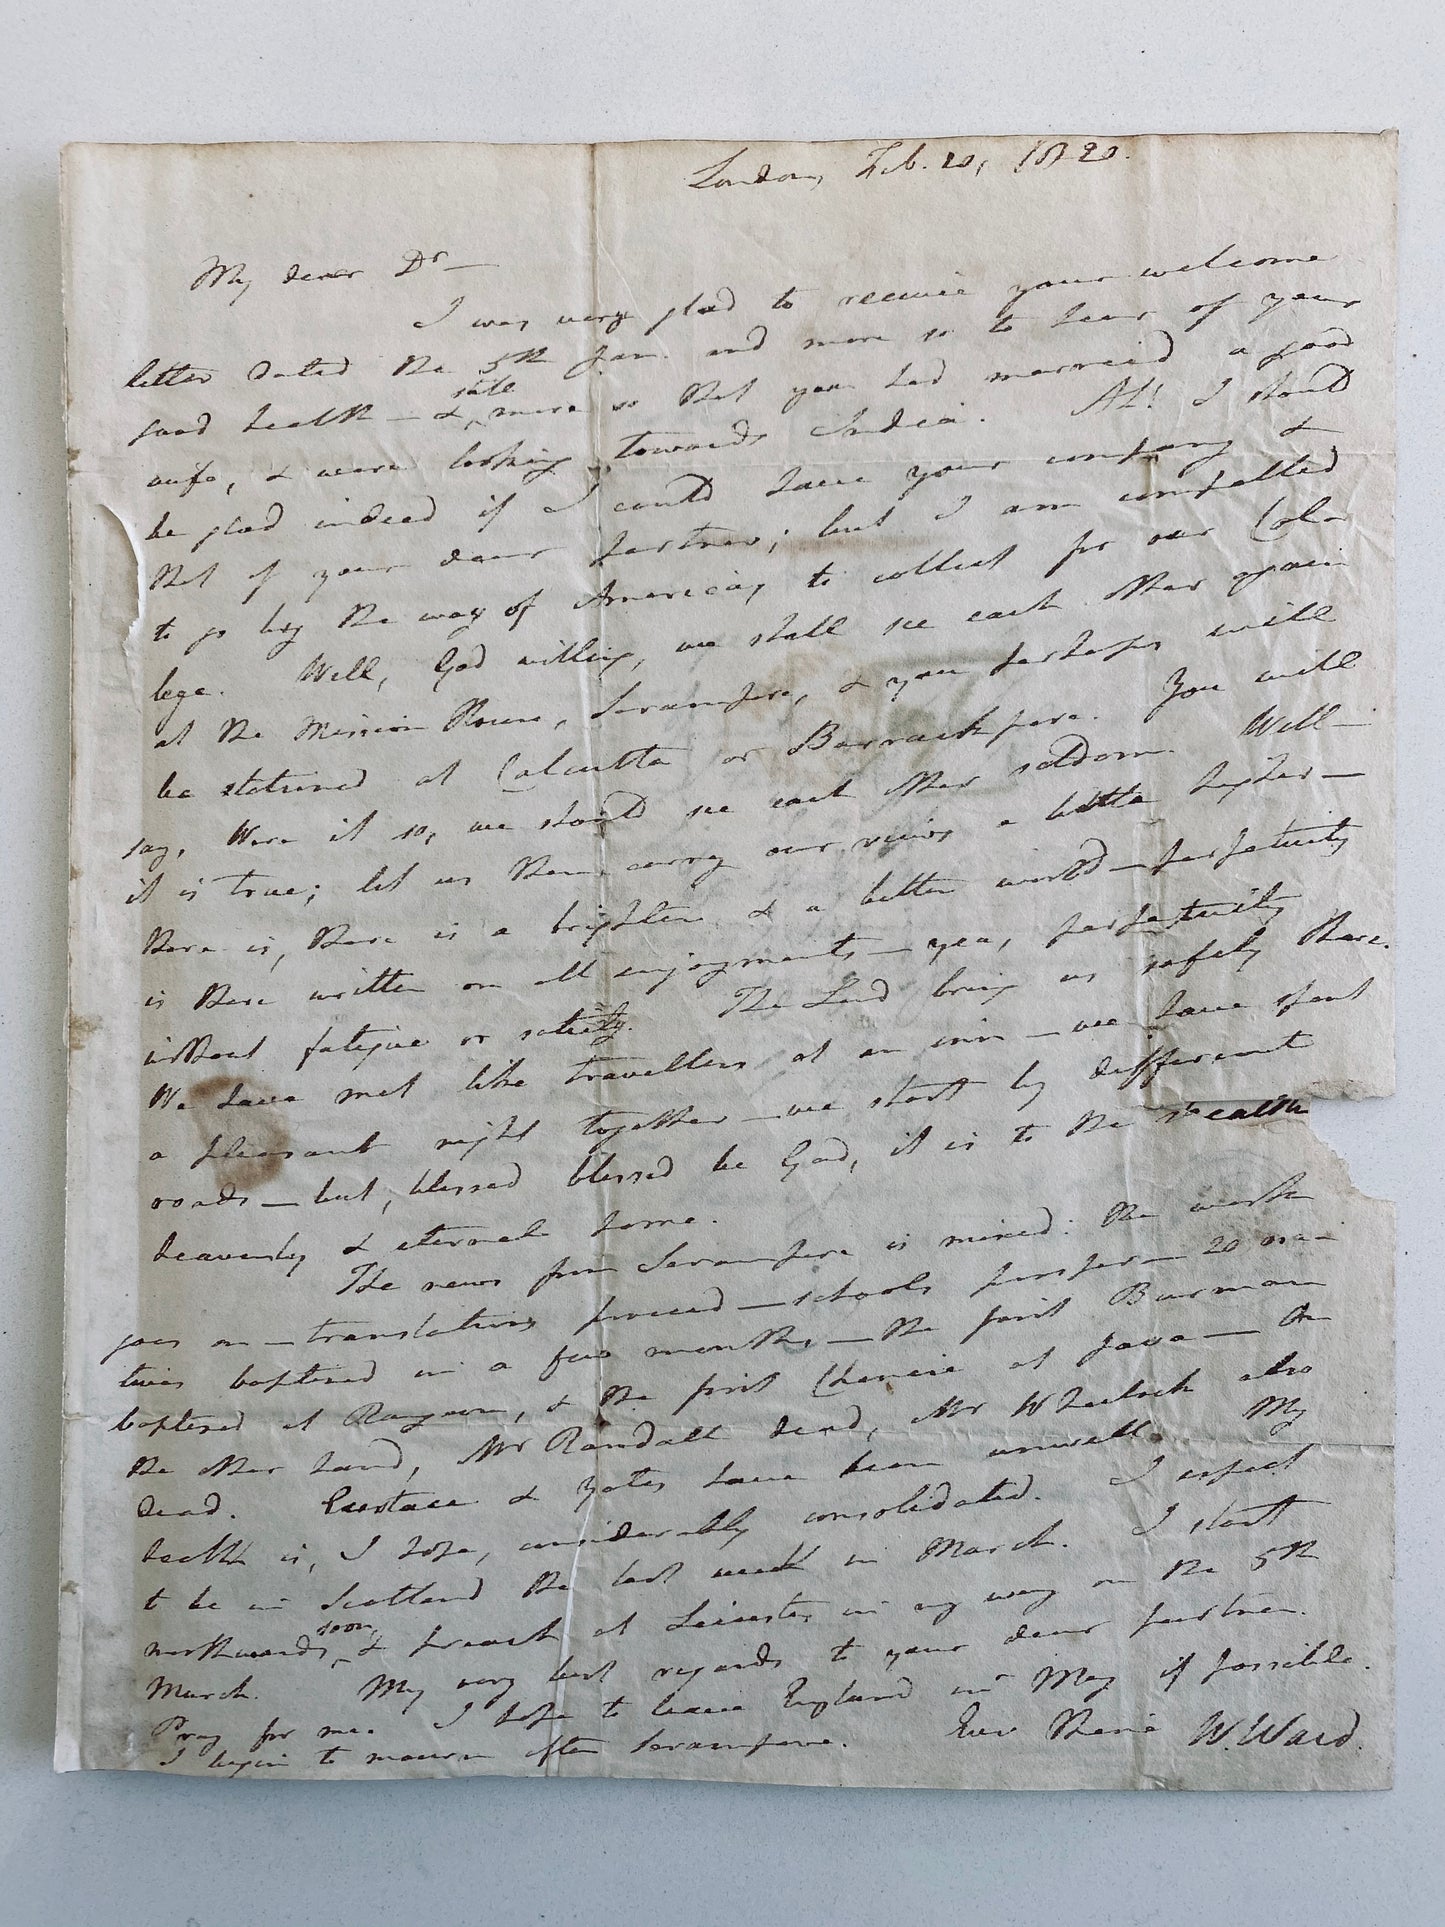 London, Feb. 20, 1820.
My dear Dr —
I was very glad to receive your welcome
letter dated the 5th Jan. and more so to hear of your
good health — & still more so that you had married a good
wife, & were looking towards India. Ah! I should
be glad indeed if I could have your company &
that of your dear partner; but I am compelled
to go by the way of America, to collect for our Col-
lege. Well, God willing, we shall see each other again
at the Mission House, Serampore, & you perhaps will
be stationed at Calcutta or Barrackpore. You will
say, Were it so, we should see each other seldom. Well —
it is true; let us then carry our views a little higher —
there is, there is a brighter & a better world — perpetuity
is there written on all enjoyments — yea, perpetuity
without fatigue or satiety. The Lord bring us safely there.
We have met like travellers at an inn — we have spent
a pleasant night together — we start by different
roads — but, blessed blessed be God, it is to the
heavenly & eternal home.
The news from Serampore is mixed: the work
goes on — translations proceed — schools prosper — 20 na-
tives baptized in a few months — the first Burman
baptized at Rangoon, & the first Chinese at Java — On
the other hand, Mr Randall dead, Mr Wheelock also
dead. Eustace & Yates have been unwell. My
health is, I hope, considerably consolidated. I expect
to be in Scotland the last week in March. I start
northwards soon, & preach at Leicester in my way on the 5th
March. My very best regards to your dear partner.
Pray for me. I hope to leave England in May if possible.
I begin to mourn after Serampore. Ever thine W. Ward.